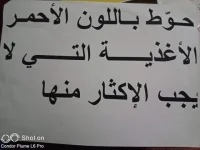 حوّط باللون الأحمر
الأغذية التي لا
يجب الإكثار منها
Shot on
Condor Plume L6 Pro